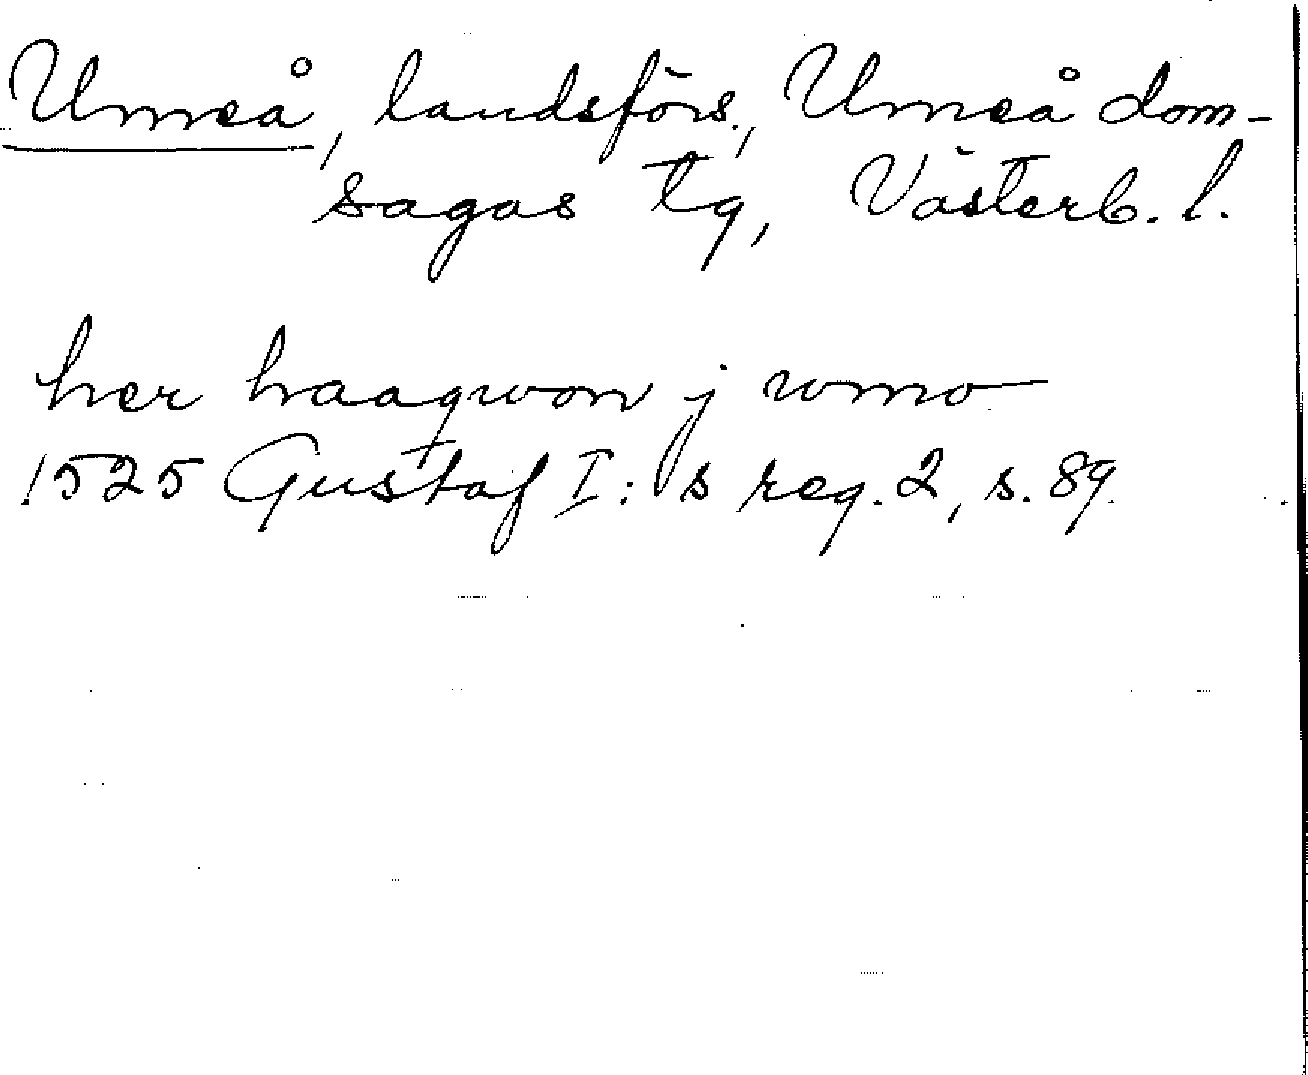 Umeå, landsförs., Umeå dom-
sagas tg, Västerb. l.
her haaqwon j wmo
1525 Gustaf I:s reg. 2, s. 89.